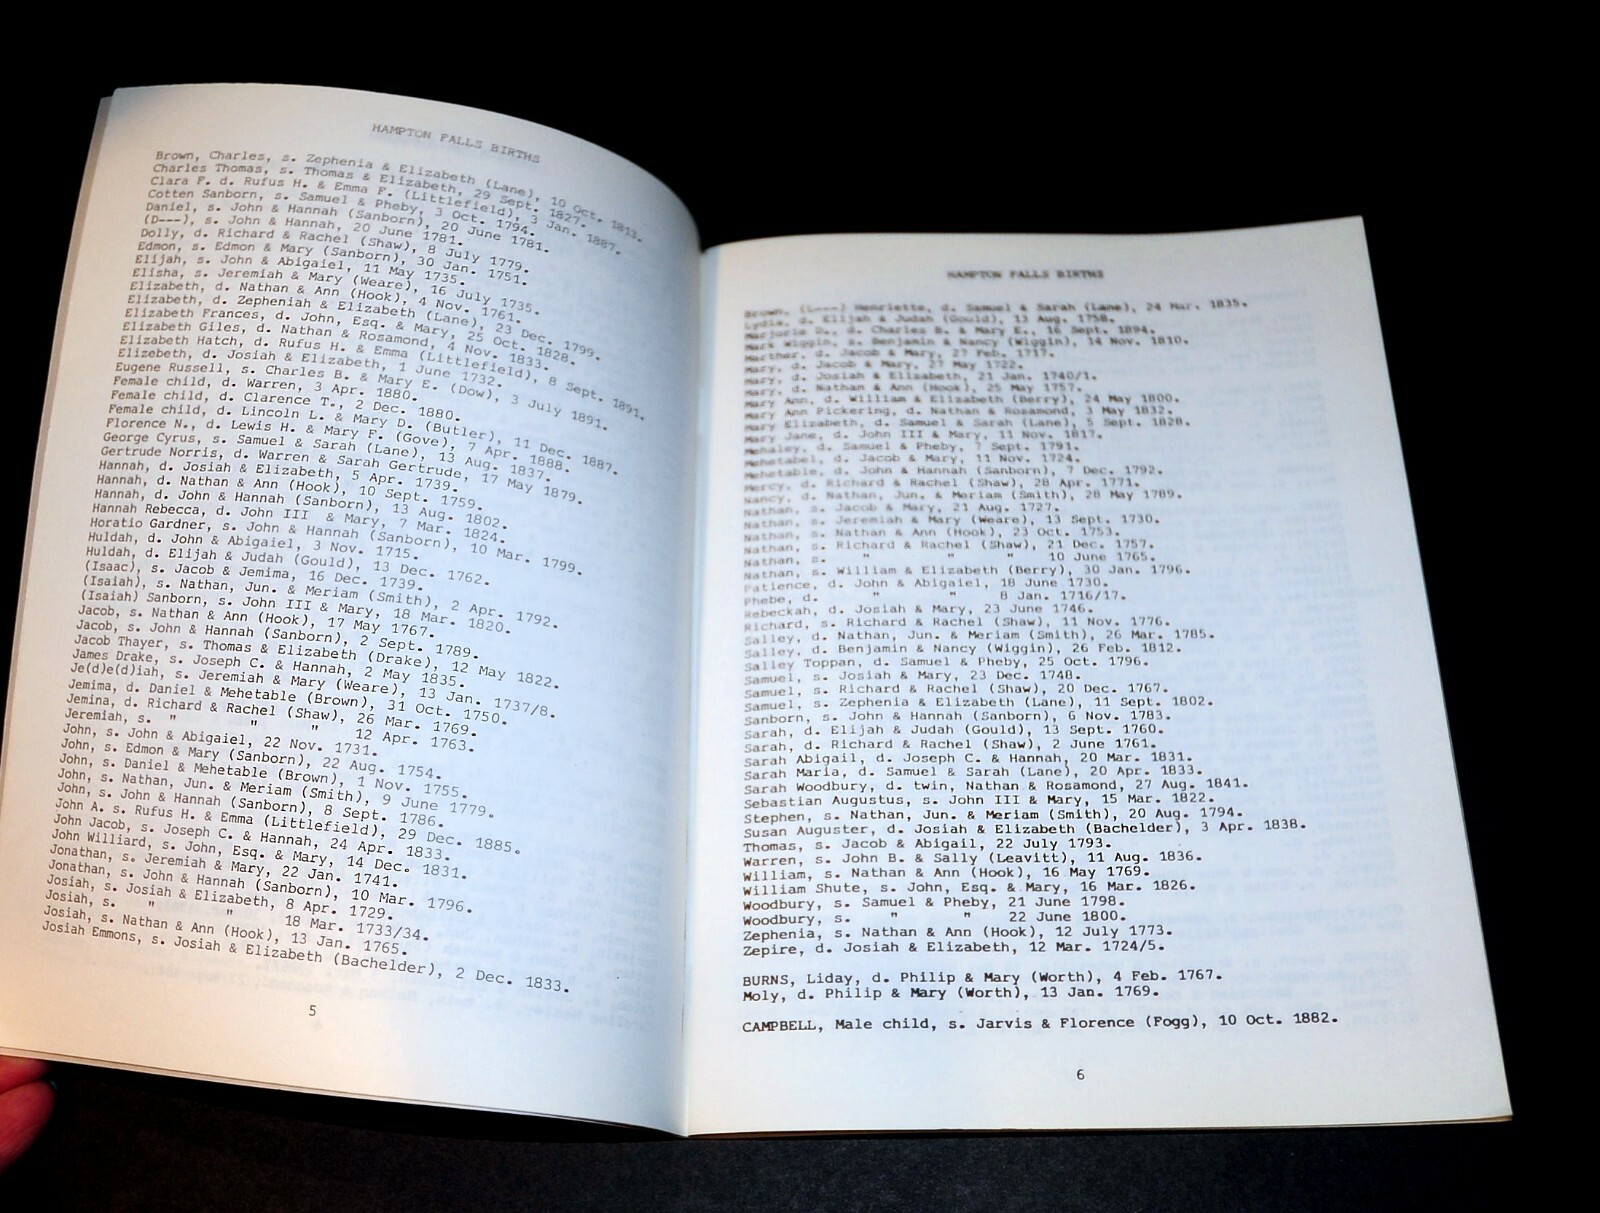 HAMPTON FALLS BIRTHS
Brown, Charles, s. Zephenia & Elizabeth (Lane), 10 Oct. 1813.
Charles Thomas, s. Thomas & Elizabeth, 29 Sept. 1827.
Clara F. d. Rufus H. & Emma F. (Littlefield), 3 Jan. 1887.
Cotten Sanborn, s. Samuel & Pheby, 3 Oct. 1794.
Daniel, s. John & Hannah (Sanborn), 20 June 1781.
(D---), s. John & Hannah, 20 June 1781.
Dolly, d. Richard & Rachel (Shaw), 8 July 1779.
Edmon, s. Edmon & Mary (Sanborn), 30 Jan. 1751.
Elijah, s. John & Abigaiel, 11 May 1735.
Elisha, s. Jeremiah & Mary (Weare), 16 July 1735.
Elizabeth, d. Nathan & Ann (Hook), 4 Nov. 1761.
Elizabeth, d. Zepheniah & Elizabeth (Lane), 23 Dec. 1799.
Elizabeth Frances, d. John, Esq. & Mary, 25 Oct. 1828.
Elizabeth Giles, d. Nathan & Rosamond, 4 Nov. 1833.
Elizabeth Hatch, d. Rufus H. & Emma (Littlefield), 8 Sept. 1891.
Elizebeth, d. Josiah & Elizabeth, 1 June 1732.
Eugene Russell, s. Charles B. & Mary E. (Dow), 3 July 1891.
Female child, d. Warren, 3 Apr. 1880.
Female child, d. Clarence T., 2 Dec. 1880.
Female child, d. Lincoln L. & Mary D. (Butler), 11 Dec. 1887.
Florence N., d. Lewis H. & Mary F. (Gove), 7 Apr. 1888.
George Cyrus, s. Samuel & Sarah (Lane), 13 Aug. 1837.
Gertrude Norris, d. Warren & Sarah Gertrude, 17 May 1879.
Hannah, d. Josiah & Elizabeth, 5 Apr. 1739.
Hannah, d. Nathan & Ann (Hook), 10 Sept. 1759.
Hannah, d. John & Hannah (Sanborn), 13 Aug. 1802.
Hannah Rebecca, d. John III & Mary, 7 Mar. 1824.
Horatio Gardner, s. John & Hannah (Sanborn), 10 Mar. 1799.
Huldah, d. John & Abigaiel, 3 Nov. 1715.
Huldah, d. Elijah & Judah (Gould), 13 Dec. 1762.
(Isaac), s. Jacob & Jemima, 16 Dec. 1739.
(Isaiah), s. Nathan, Jun. & Meriam (Smith), 2 Apr. 1792.
(Isaiah) Sanborn, s. John III & Mary, 18 Mar. 1820.
Jacob, s. Nathan & Ann (Hook), 17 May 1767.
Jacob, s. John & Hannah (Sanborn), 2 Sept. 1789.
Jacob Thayer, s. Thomas & Elizabeth (Drake), 12 May 1822.
James Drake, s. Joseph C. & Hannah, 2 May 1835.
Je(d)e(d)iah, s. Jeremiah & Mary (Weare), 13 Jan. 1737/8.
Jemima, d. Daniel & Mehetable (Brown), 31 Oct. 1750.
Jemina, d. Richard & Rachel (Shaw), 26 Mar. 1769.
Jeremiah, s. " " " 12 Apr. 1763.
John, s. John & Abigaiel, 22 Nov. 1731.
John, s. Edmon & Mary (Sanborn), 22 Aug. 1754.
John, s. Daniel & Mehetable (Brown), 1 Nov. 1755.
John, s. Nathan, Jun. & Meriam (Smith), 9 June 1779.
John, s. John & Hannah (Sanborn), 8 Sept. 1786.
John A. s. Rufus H. & Emma (Littlefield), 29 Dec. 1885.
John Jacob, s. Joseph C. & Hannah, 24 Apr. 1833.
John Williard, s. John, Esq. & Mary, 14 Dec. 1831.
Jonathan, s. Jeremiah & Mary, 22 Jan. 1741.
Jonathan, s. John & Hannah (Sanborn), 10 Mar. 1796.
Josiah, s. Josiah & Elizabeth, 8 Apr. 1729.
Josiah, s. " " 18 Mar. 1733/34.
Josiah, s. Nathan & Ann (Hook), 13 Jan. 1765.
Josiah Emmons, s. Josiah & Elizabeth (Bachelder), 2 Dec. 1833.
5
HAMPTON FALLS BIRTHS
Brown, (L---) Henriette, d. Samuel & Sarah (Lane), 24 Mar. 1835.
Lydia, d. Elijah & Judah (Gould), 13 Aug. 1758.
Marjorie D., d. Charles B. & Mary E., 16 Sept. 1894.
Mark Wiggin, s. Benjamin & Nancy (Wiggin), 14 Nov. 1810.
Marthar, d. Jacob & Mary, 27 Feb. 1717.
Mary, d. Jacob & Mary, 27 May 1722.
Mary, d. Josiah & Elizabeth, 21 Jan. 1740/1.
Mary, d. Nathan & Ann (Hook), 25 May 1757.
Mary Ann, d. William & Elizabeth (Berry), 24 May 1800.
Mary Ann Pickering, d. Nathan & Rosamond, 3 May 1832.
Mary Elizabeth, d. Samuel & Sarah (Lane), 5 Sept. 1828.
Mary Jane, d. John III & Mary, 11 Nov. 1817.
Mehaley, d. Samuel & Pheby, 7 Sept. 1791.
Mehetabel, d. Jacob & Mary, 11 Nov. 1724.
Mehetable, d. John & Hannah (Sanborn), 7 Dec. 1792.
Mercy, d. Richard & Rachel (Shaw), 28 Apr. 1771.
Nancy, d. Nathan, Jun. & Meriam (Smith), 28 May 1789.
Nathan, s. Jacob & Mary, 21 Aug. 1727.
Nathan, s. Jeremiah & Mary (Weare), 13 Sept. 1730.
Nathan, s. Nathan & Ann (Hook), 23 Oct. 1753.
Nathan, s. Richard & Rachel (Shaw), 21 Dec. 1757.
Nathan, s. " " " 10 June 1765.
Nathan, s. William & Elizabeth (Berry), 30 Jan. 1796.
Patience, d. John & Abigaiel, 18 June 1730.
Phebe, d. " " 8 Jan. 1716/17.
Rebeckah, d. Josiah & Mary, 23 June 1746.
Richard, s. Richard & Rachel (Shaw), 11 Nov. 1776.
Salley, d. Nathan, Jun. & Meriam (Smith), 26 Mar. 1785.
Salley, d. Benjamin & Nancy (Wiggin), 26 Feb. 1812.
Salley Toppan, d. Samuel & Pheby, 25 Oct. 1796.
Samuel, s. Josiah & Mary, 23 Dec. 1748.
Samuel, s. Richard & Rachel (Shaw), 20 Dec. 1767.
Samuel, s. Zephenia & Elizabeth (Lane), 11 Sept. 1802.
Sanborn, s. John & Hannah (Sanborn), 6 Nov. 1783.
Sarah, d. Elijah & Judah (Gould), 13 Sept. 1760.
Sarah, d. Richard & Rachel (Shaw), 2 June 1761.
Sarah Abigail, d. Joseph C. & Hannah, 20 Mar. 1831.
Sarah Maria, d. Samuel & Sarah (Lane), 20 Apr. 1833.
Sarah Woodbury, d. twin, Nathan & Rosamond, 27 Aug. 1841.
Sebastian Augustus, s. John III & Mary, 15 Mar. 1822.
Stephen, s. Nathan, Jun. & Meriam (Smith), 20 Aug. 1794.
Susan Auguster, d. Josiah & Elizabeth (Bachelder), 3 Apr. 1838.
Thomas, s. Jacob & Abigail, 22 July 1793.
Warren, s. John B. & Sally (Leavitt), 11 Aug. 1836.
William, s. Nathan & Ann (Hook), 16 May 1769.
William Shute, s. John, Esq. & Mary, 16 Mar. 1826.
Woodbury, s. Samuel & Pheby, 21 June 1798.
Woodbury, s. " " 22 June 1800.
Zephenia, s. Nathan & Ann (Hook), 12 July 1773.
Zepire, d. Josiah & Elizabeth, 12 Mar. 1724/5.
BURNS, Liday, d. Philip & Mary (Worth), 4 Feb. 1767.
Moly, d. Philip & Mary (Worth), 13 Jan. 1769.
CAMPBELL, Male child, s. Jarvis & Florence (Fogg), 10 Oct. 1882.
6